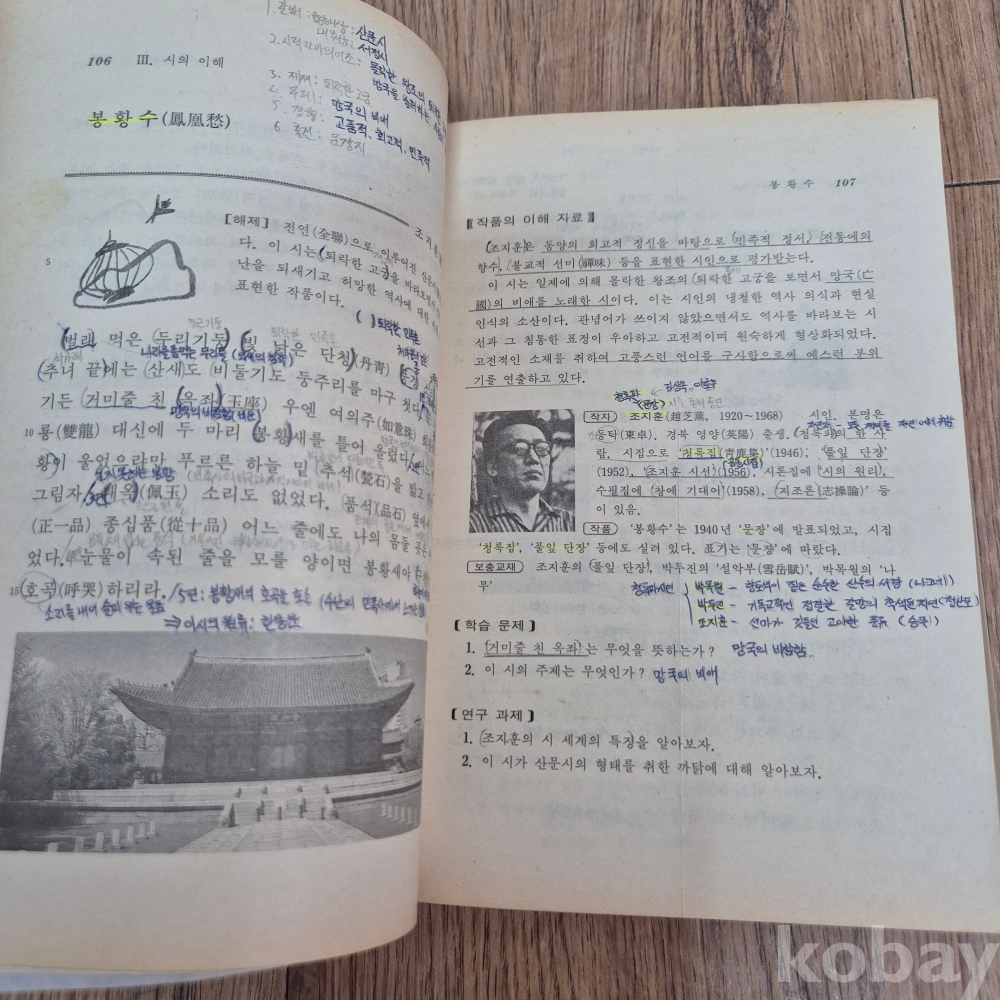 106 Ⅲ. 시의 이해
1. 갈래 : 형태상 : 산문시
내용상 : 서정시
3. 제재 : 퇴락한 고궁
4. 주제 : 망국의 비애
5. 경향 : 고품적, 회고적, 민족적
6. 출전 : 문장지
봉황수(鳳凰愁)
조지훈
5
[해제] 전연(全聯)으로 이루어진 산문
다. 이 시는 퇴락한 고궁을 바라보면서
난을 되새기고 허망한 역사에 대한
표현한 작품이다.
벌레 먹은 두리기둥 빛 낡은 단청(丹靑)
추녀 끝에는 산새도 비둘기도 둥주리를 마구 쳤다.
기든 거미줄 친 옥좌(玉座) 우엔 여의주(如意珠)
10 룡(雙龍) 대신에 두 마리 봉황새를 틀어 올렸다.
황이 울었으랴만 푸르른 하늘 밑 추석(甃石)을 밟고
그림자. 패옥(佩玉) 소리도 없었다. 품석(品石) 옆에서
(正一品) 종십품(從十品) 어느 줄에도 나의 몸둘 곳은
었다. 눈물이 속된 줄을 모를 양이면 봉황새야
15 호곡(呼哭)하리라. /5연 : 봉황새의 호곡을 호소
봉 황 수 107
【작품의 이해 자료】
조지훈은 동양의 회고적 정신을 바탕으로 민족적 정서, 전통에의
향수, 불교적 선미(禪味) 등을 표현한 시인으로 평가받는다.
이 시는 일제에 의해 몰락한 왕조의 퇴락한 고궁을 보면서 망국(亡
國)의 비애를 노래한 시이다. 이는 시인의 냉철한 역사 의식과 현실
인식의 소산이다. 관념어가 쓰이지 않았으면서도 역사를 바라보는 시
선과 그 침통한 표정이 우아하고 고전적이며 원숙하게 형상화되었다.
고전적인 소재를 취하여 고풍스런 언어를 구사함으로써 예스런 분위
기를 연출하고 있다.
청록파 김상옥, 이호우
(문장)
작자 조지훈(趙芝薰, 1920~1968) 시인. 본명은
동탁(東卓). 경북 영양(英陽) 출생. 청록파의 한 사
람. 시집으로 '청록집(靑鹿集)'(1946), '풀잎 단장'
(1952), '조지훈 시선'(1956), 시론집에 '시의 원리',
수필집에 '창에 기대어'(1958), '지조론(志操論)' 등
이 있음.
작품 '봉황수'는 1940년 '문장'에 발표되었고, 시집
'청록집', '풀잎 단장' 등에도 실려 있다. 표기는 '문장'에 따랐다.
보충교재 조지훈의 '풀잎 단장', 박두진의 '설악부(雪岳賦)', 박목월의 '나
무'
청록파시인 박목월 - 향토색이 짙은 순수한 산수의 서정 (나그네)
박두진 - 기독교적인 절절한 갈망의 축적된 자연
조지훈 - 선미가 깃들인 고아한 풍류 (승무)
【학습 문제】
1. 거미줄 친 옥좌는 무엇을 뜻하는가? 망국의 비참함
2. 이 시의 주제는 무엇인가? 망국의 비애
【연구 과제】
1. 조지훈의 시 세계의 특징을 알아보자.
2. 이 시가 산문시의 형태를 취한 까닭에 대해 알아보자.
kobay